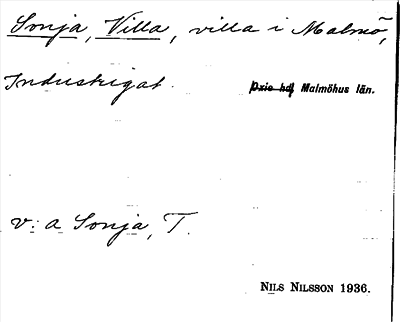 Sonja, Villa, villa i Malmö,
Industrigat. Oxie hd, Malmöhus län.
v: a Sonja, T.
NILS NILSSON 1936.